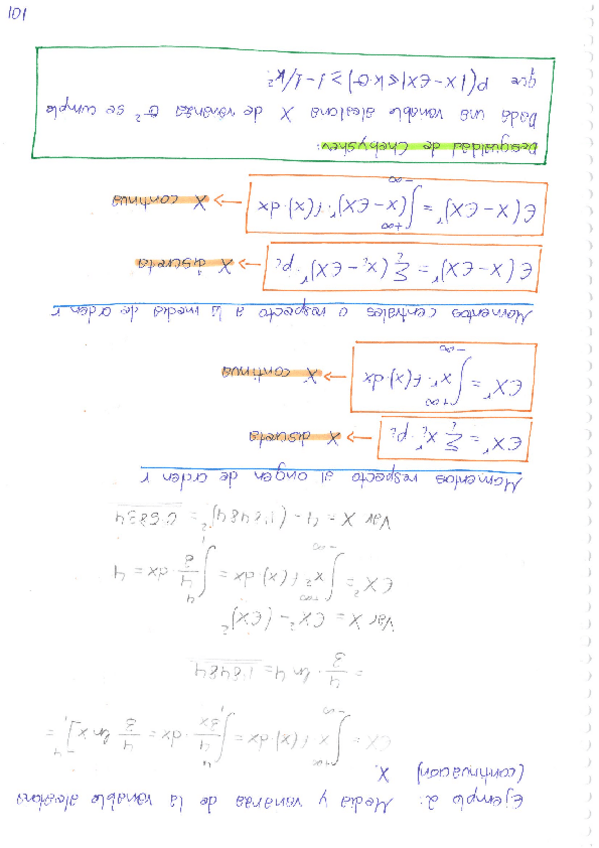 Ejemplo 2: Media y varianza de la variable aleatoria
(continuación) X.
EX = ∫_{-∞}^{+∞} x f(x) dx = ∫_1^4 4/3x · dx = 4/3 ln x]_1^4 =
= 4/3 · ln 4 = 1.8484
Var X = EX² - (EX)²
EX² = ∫_{-∞}^{+∞} x² f(x) dx = ∫_1^4 4/3 · dx = 4
Var X = 4 - (1.8484)² = 0.5834
Momentos respecto al origen de orden r
EX^r = Σ_i x_i^r · p_i → X discreta
EX^r = ∫_{-∞}^{+∞} x^r · f(x) · dx → X continua
Momentos centrales o respecto a la media de orden r
E(X-EX)^r = Σ_i (x_i-EX)^r · p_i → X discreta
E(X-EX)^r = ∫_{-∞}^{+∞} (x-EX)^r · f(x) · dx → X continua
Desigualdad de Chebyshev:
Dada una variable aleatoria X de varianza σ² se cumple
que P(|X-EX|≤k·σ) ≥ 1-1/k².
101